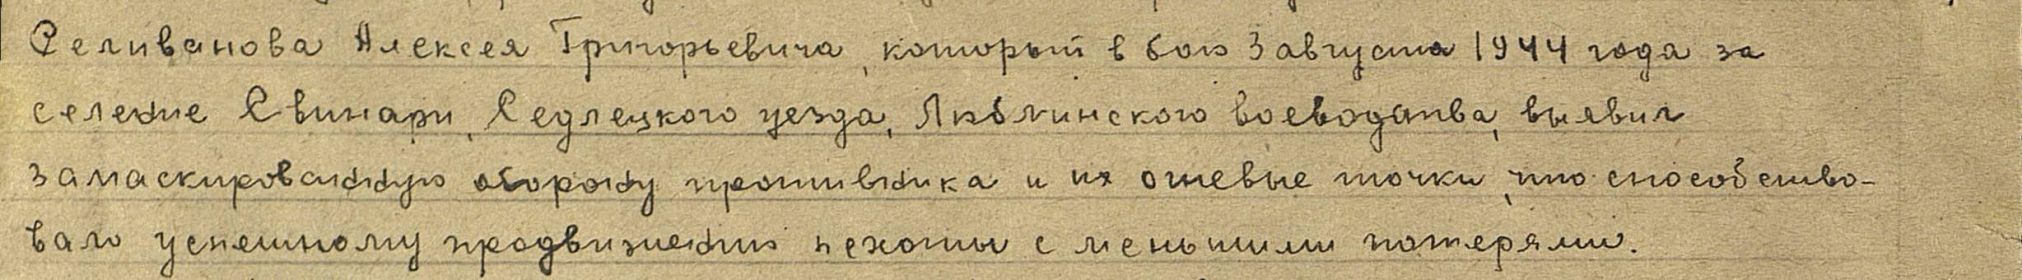 Селиванова Алексея Григорьевича, который в бою 3 августа 1944 года за
селение Свинари, Седлецкого уезда, Люблинского воеводства, выявил
замаскированную оборону противника и их огневые точки, что способство-
вало успешному продвижению пехоты с меньшими потерями.